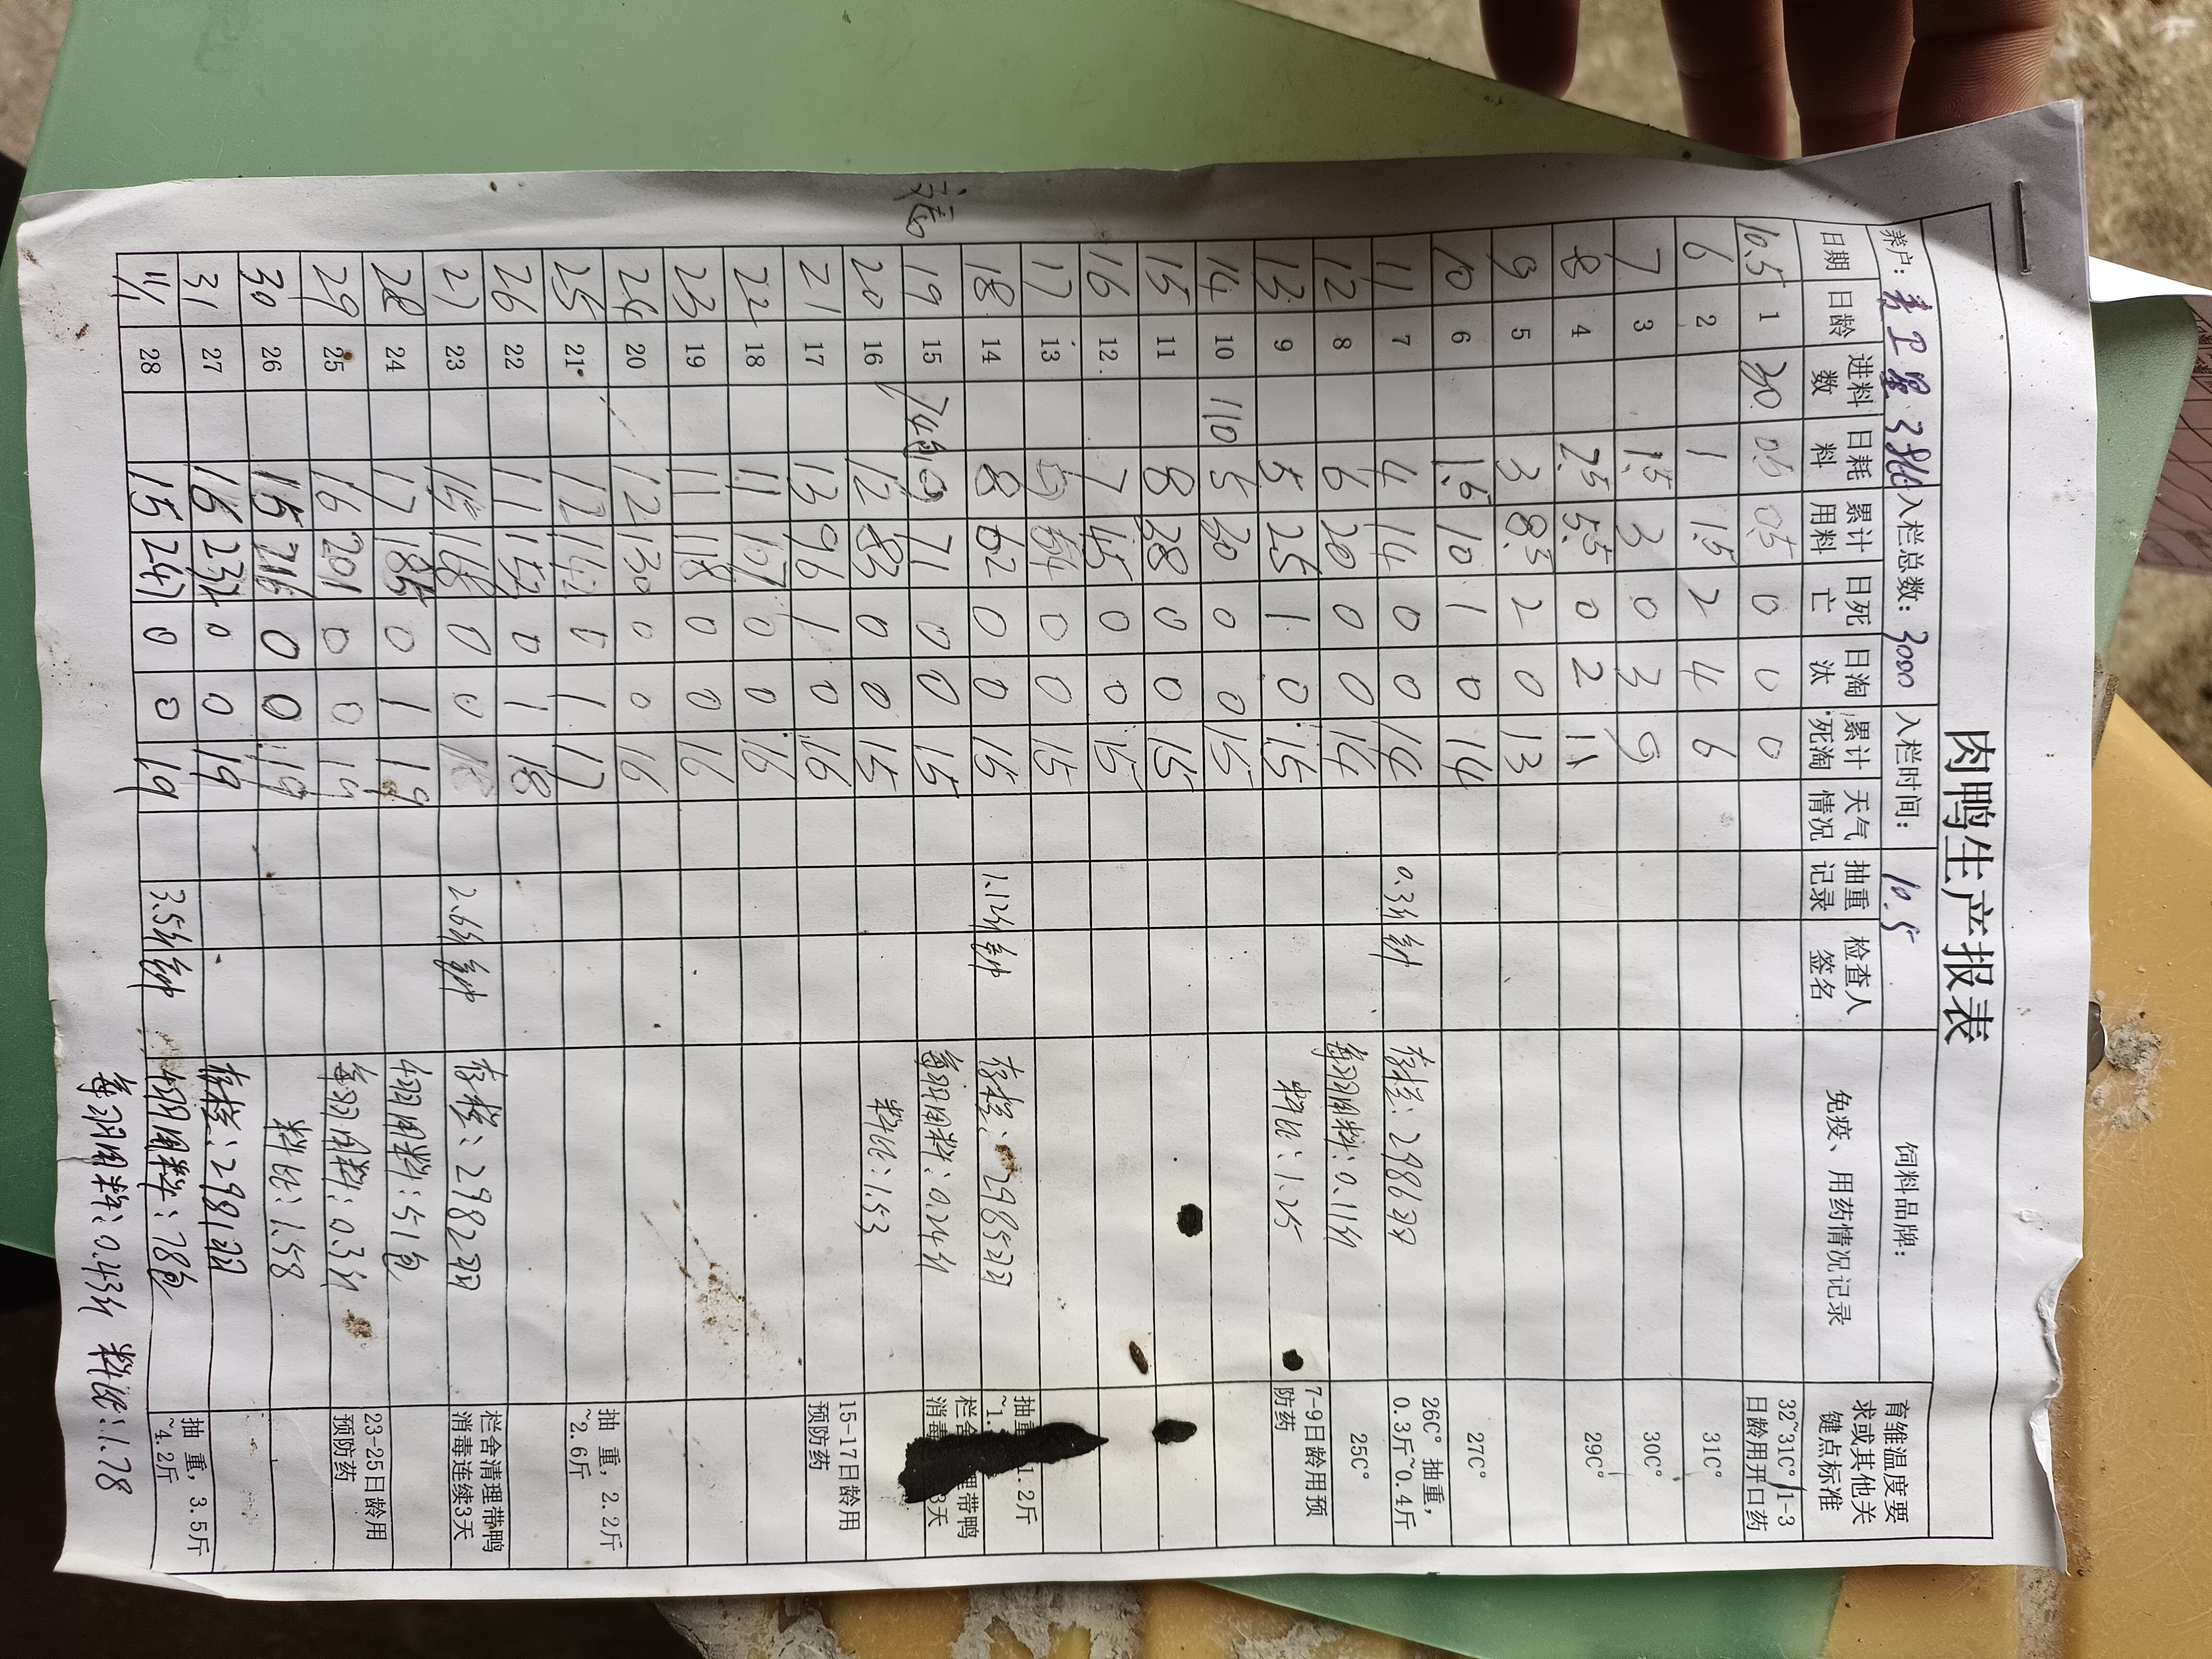 肉鸭生产报表
养户: 入栏总数: 3000 入栏时间: 10.5 饲料品牌:
日期 日龄 进料数 日耗料 累计用料 日死亡 日淘汰 累计死淘 天气情况 抽重记录 检查人签名 免疫、用药情况记录 育雏温度要求或其他关键点标准
10.5 1 30 0.5 0.5 0 0 0 32~31C° 1-3日龄用开口药
6 2 1 1.5 2 4 6 31C°
7 3 1.5 3 0 3 9 30C°
8 4 2.5 5.5 0 2 11 29C°
9 5 3 8.5 2 0 13
10 6 1.5 10 1 0 14 27C°
11 7 4 14 0 0 14 0.3斤/只 存栏: 2986羽 26C° 抽重, 0.3斤~0.4斤
12 8 6 20 0 0 14 每羽用料: 0.11斤 25C°
13 9 5 25 1 0 15 料比: 1.25 7-9日龄用预防药
14 10 110 5 30 0 0 15
15 11 8 38 0 0 15
16 12 7 45 0 0 15
17 13 54 0 0 15
18 14 8 62 0 0 15 1.12斤/ 存栏: 2985羽 抽重 1.2斤
19 15 71 0 0 15 每羽用料: 0.24斤 栏舍 理带鸭消毒 3天
20 16 12 83 0 0 15 料比: 1.53
21 17 13 96 1 0 16 15-17日龄用预防药
22 18 11 107 0 0 16
23 19 11 118 0 0 16
24 20 12 130 0 0 16
25 21 12 142 0 1 17 抽 重, 2.2斤~2.6斤
26 22 11 152 0 1 18
27 23 168 0 0 18 2.6斤 存栏: 2982羽 栏舍清理带鸭消毒连续3天
28 24 17 185 0 1 19 一周用料: 51包
29 25 16 201 0 0 19 每羽用料: 0.3斤 23-25日龄用预防药
30 26 15 216 0 0 19 料比: 1.58
31 27 16 232 0 0 19 存栏: 2981羽
11/1 28 15 247 0 0 19 3.5斤 一周用料: 78包 抽 重, 3.5斤~4.2斤
每羽用料: 0.43斤 料比: 1.78